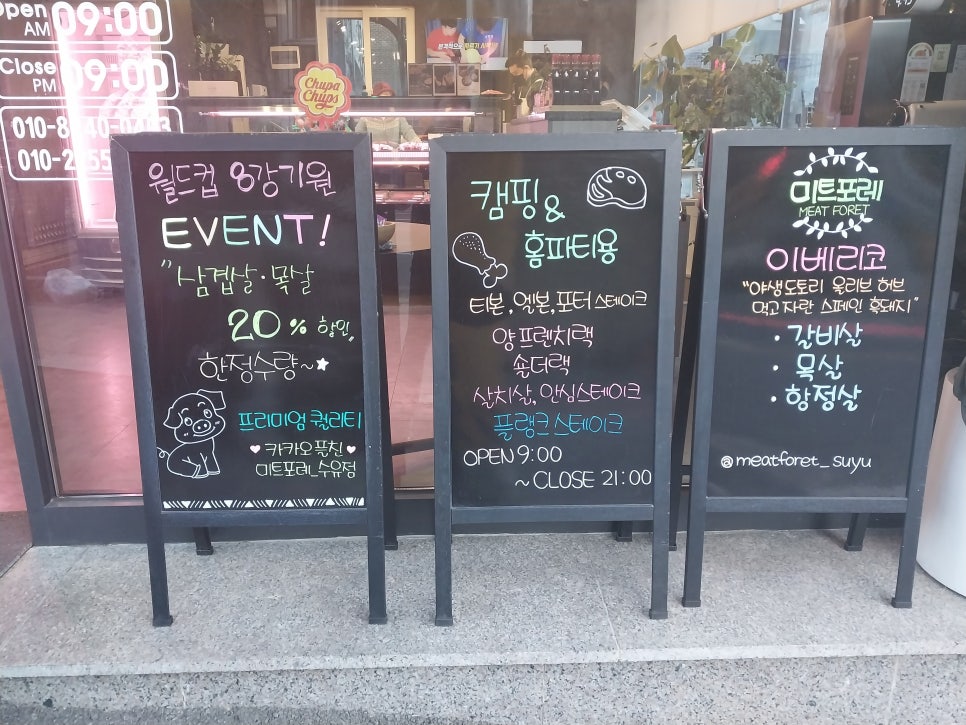 Open
AM 09:00
Close
PM 09:00
Chupa
Chups
월드컵 8강기원
EVENT!
"삼겹살·목살
20% 할인,
한정수량~★
프리미엄 퀄리티
♥ 카카오플친 ♥
미트포레_수유점
캠핑&
홈파티용
티본, 엘본, 포터 스테이크
양 프렌치랙
숄더랙
살치살, 안심스테이크
플랭크 스테이크
OPEN 9:00
~CLOSE 21:00
미트포레
MEAT FORET
이베리코
"야생도토리 올리브 허브
먹고 자란 스페인 흑돼지"
· 갈비살
· 목살
· 항정살
@meatforet_suyu